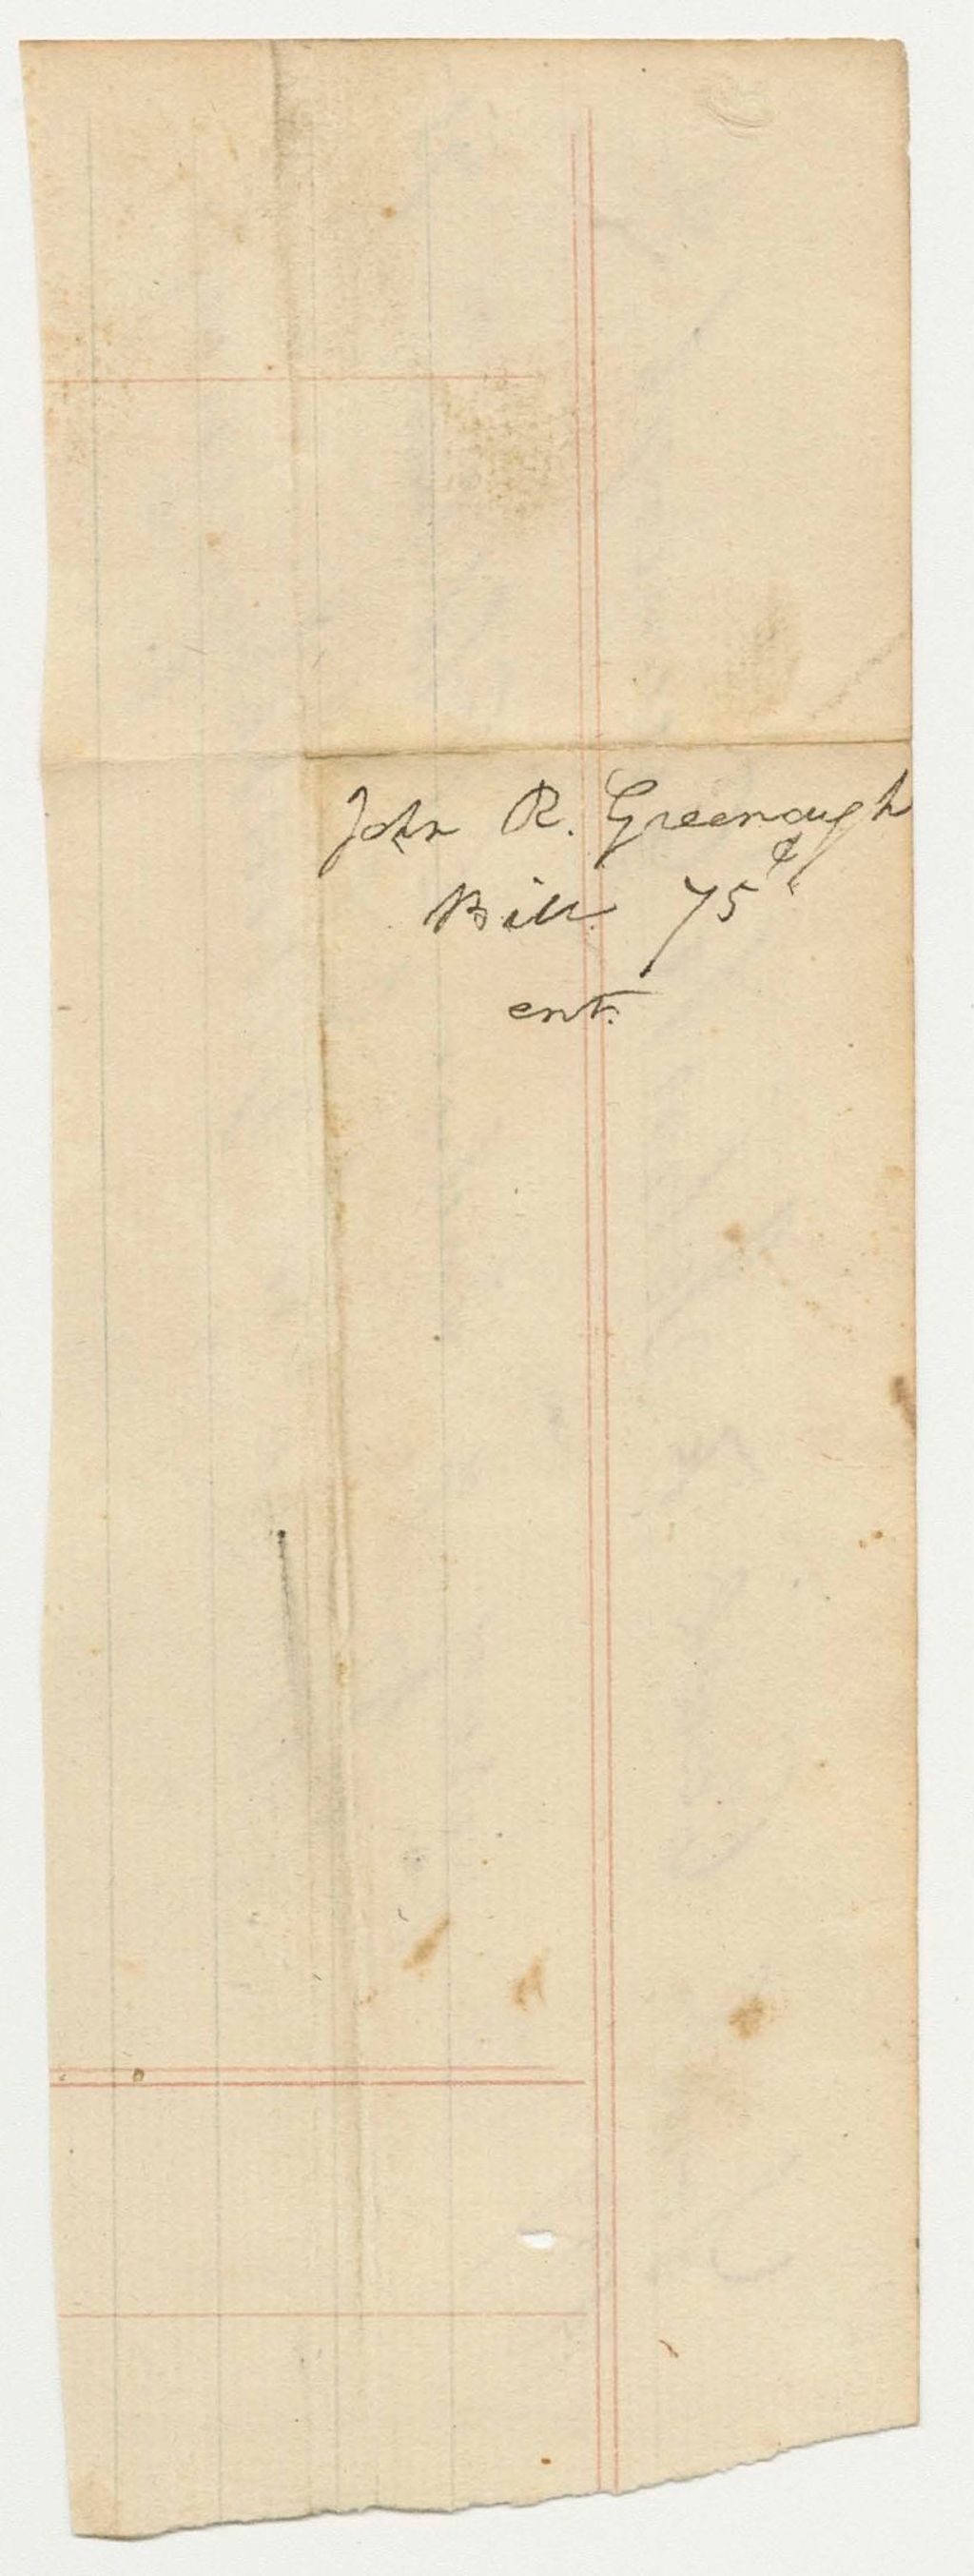 John R. Greenough
Bill. 75¢
ent.